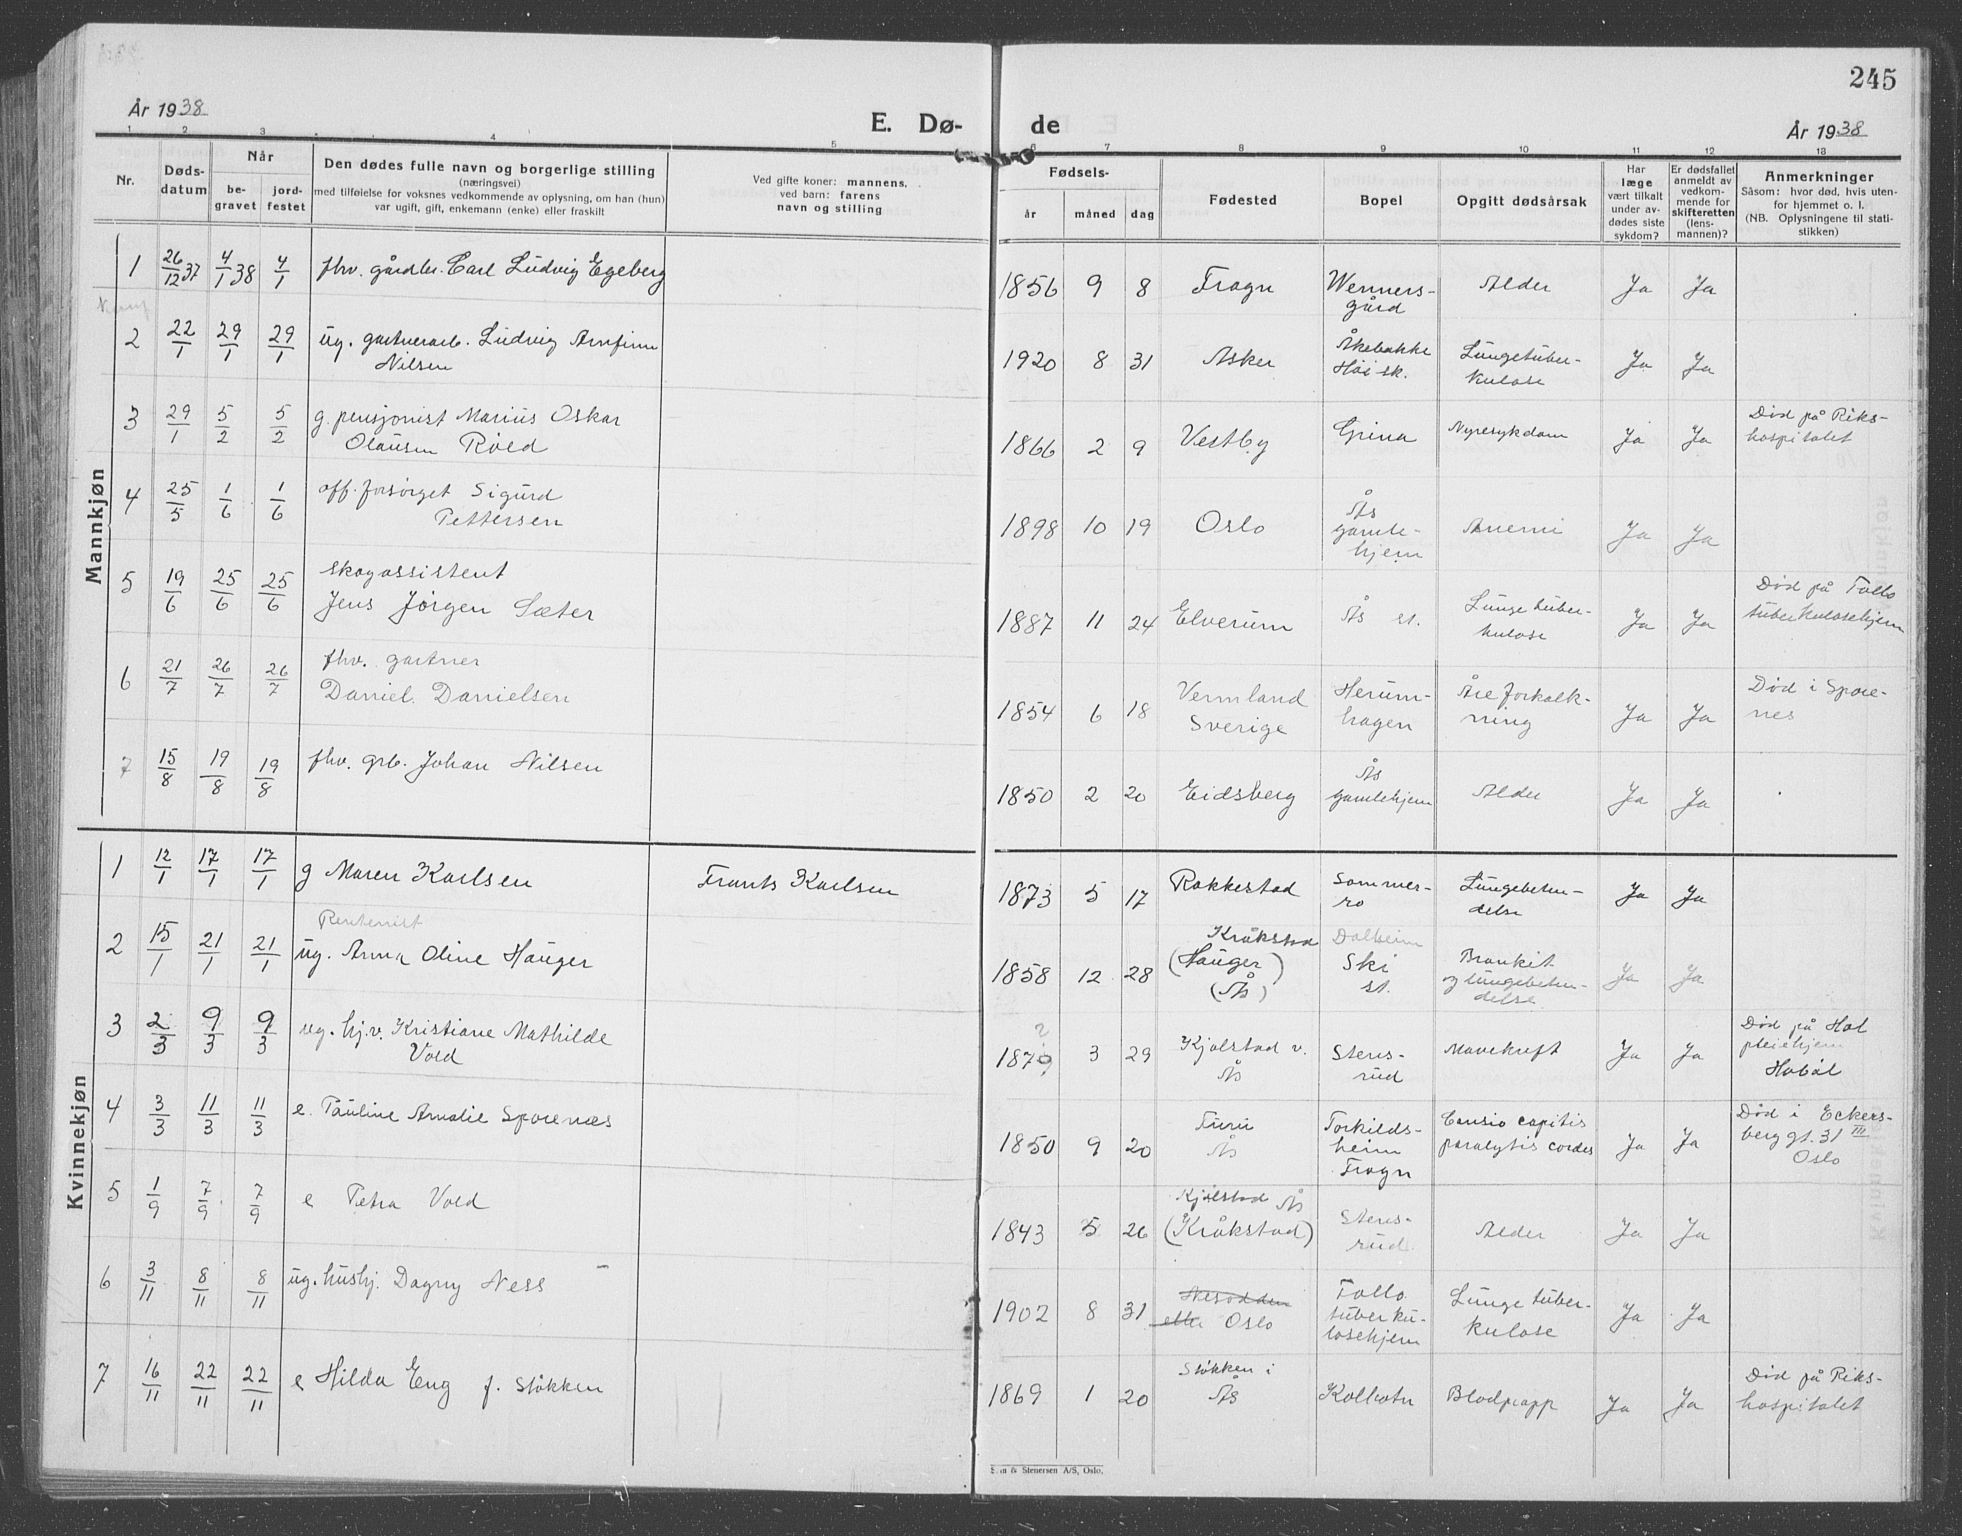 245
År 1938
E. Dø-
de
År 1938
1 2 3 4 5 6 7 8 9 10 11 12 13
Nr.
Døds-
datum
Når
be-
gravet
jord-
festet
Den dødes fulle navn og borgerlige stilling
(næringsvei)
med tilføielse for voksnes vedkommende av oplysning, om han (hun)
var ugift, gift, enkemann (enke) eller fraskilt
Ved gifte koner: mannens,
ved barn: farens
navn og stilling
Fødsels-
år måned dag
Fødested
Bopel
Opgitt dødsårsak
Har
læge
vært tilkalt
under av-
dødes siste
sykdom?
Er dødsfallet
anmeldt av
vedkom-
mende for
skifteretten
(lens-
mannen)?
Anmerkninger
Såsom: hvor død, hvis uten-
for hjemmet o. l.
(NB. Oplysningene til stati-
stikken)
Mannkjøn
1 26/12 37 4/1 38 4/1 fhv. gårdbr. Carl Ludvig Egeberg 1856 9 8 Frogn Wenners-
gård Alder Ja Ja
2 22/1 29/1 29/1 ug. gartnerarb. Ludvig Arnfinn
Nilsen 1920 8 31 Asker Åkebakke
Høi sk. Lungetuber-
kulose Ja Ja
3 29/1 5/2 5/2 g. pensjonist Marius Oskar
Olausen Røed 1866 2 9 Vestby Grina Nyresykdom Ja Ja Død på Riks-
hospitalet
4 25/5 1/6 1/6 off. forsørget Sigurd
Pettersen 1898 10 19 Oslo Ås
gamle-
hjem Anemi Ja Ja
5 19/6 25/6 25/6 skogassistent
Jens Jørgen Sæter 1887 11 24 Elverum Ås st. Lunge tuber-
kulose Ja Ja Død på Follo
tuberkulosehjem
6 21/7 26/7 26/7 fhv. gartner
Daniel Danielsen 1854 6 18 Vermland
Sverige Herum-
hagen Åre forkalk-
ning Ja Ja Død i Spore-
nes
7 15/8 19/8 19/8 fhv. grb. Johan Nilsen 1850 2 20 Eidsberg Ås
gamlehjem Alder Ja Ja
Kvinnekjøn
1 12/1 17/1 17/1 g Maren Karlsen Frants Karlsen 1873 5 17 Rakkestad Sommer-
ro Lungebeten-
delse Ja Ja
Rentenist
2 15/1 21/1 21/1 ug. Anna Oline Hauger 1858 12 28 Kråkstad
(Hauger)
(Ås) Dalheim
Ski
st. Bronkit
og lungebeten-
delse Ja Ja
3 2/3 9/3 9/3 ug. hj.v. Kristiane Mathilde
Vold 1879 3 29 Kjølstad v.
Ås Stens-
rud Mavekreft Ja Ja Død på Hol
pleiehjem
Hobøl
4 3/3 11/3 11/3 e. Pauline Amalie Sporenæs 1850 9 20 Furu
Ås Torkilds-
heim
Frogn capitis
paralytis cordes Ja Ja Død i Eckers-
berg gt. 31 III
Oslo
5 1/9 7/9 7/9 e Petra Vold 1843 5 26 Kjølstad Ås
(Kråkstad) Stens-
rud Alder Ja Ja
6 3/11 8/11 8/11 ug. hushj. Dagny Ness 1902 8 31 Nesodden
eller Oslo Follo
tuberku-
losehjem Lunge tuber-
kulose Ja Ja
7 16/11 22/11 22/11 e Hilda Eng f. Støkken 1869 1 20 Støkken i
Ås Kolbotn Blodpropp Ja Ja Død på Riks-
hospitalet
& Stenersen A/S, Oslo.